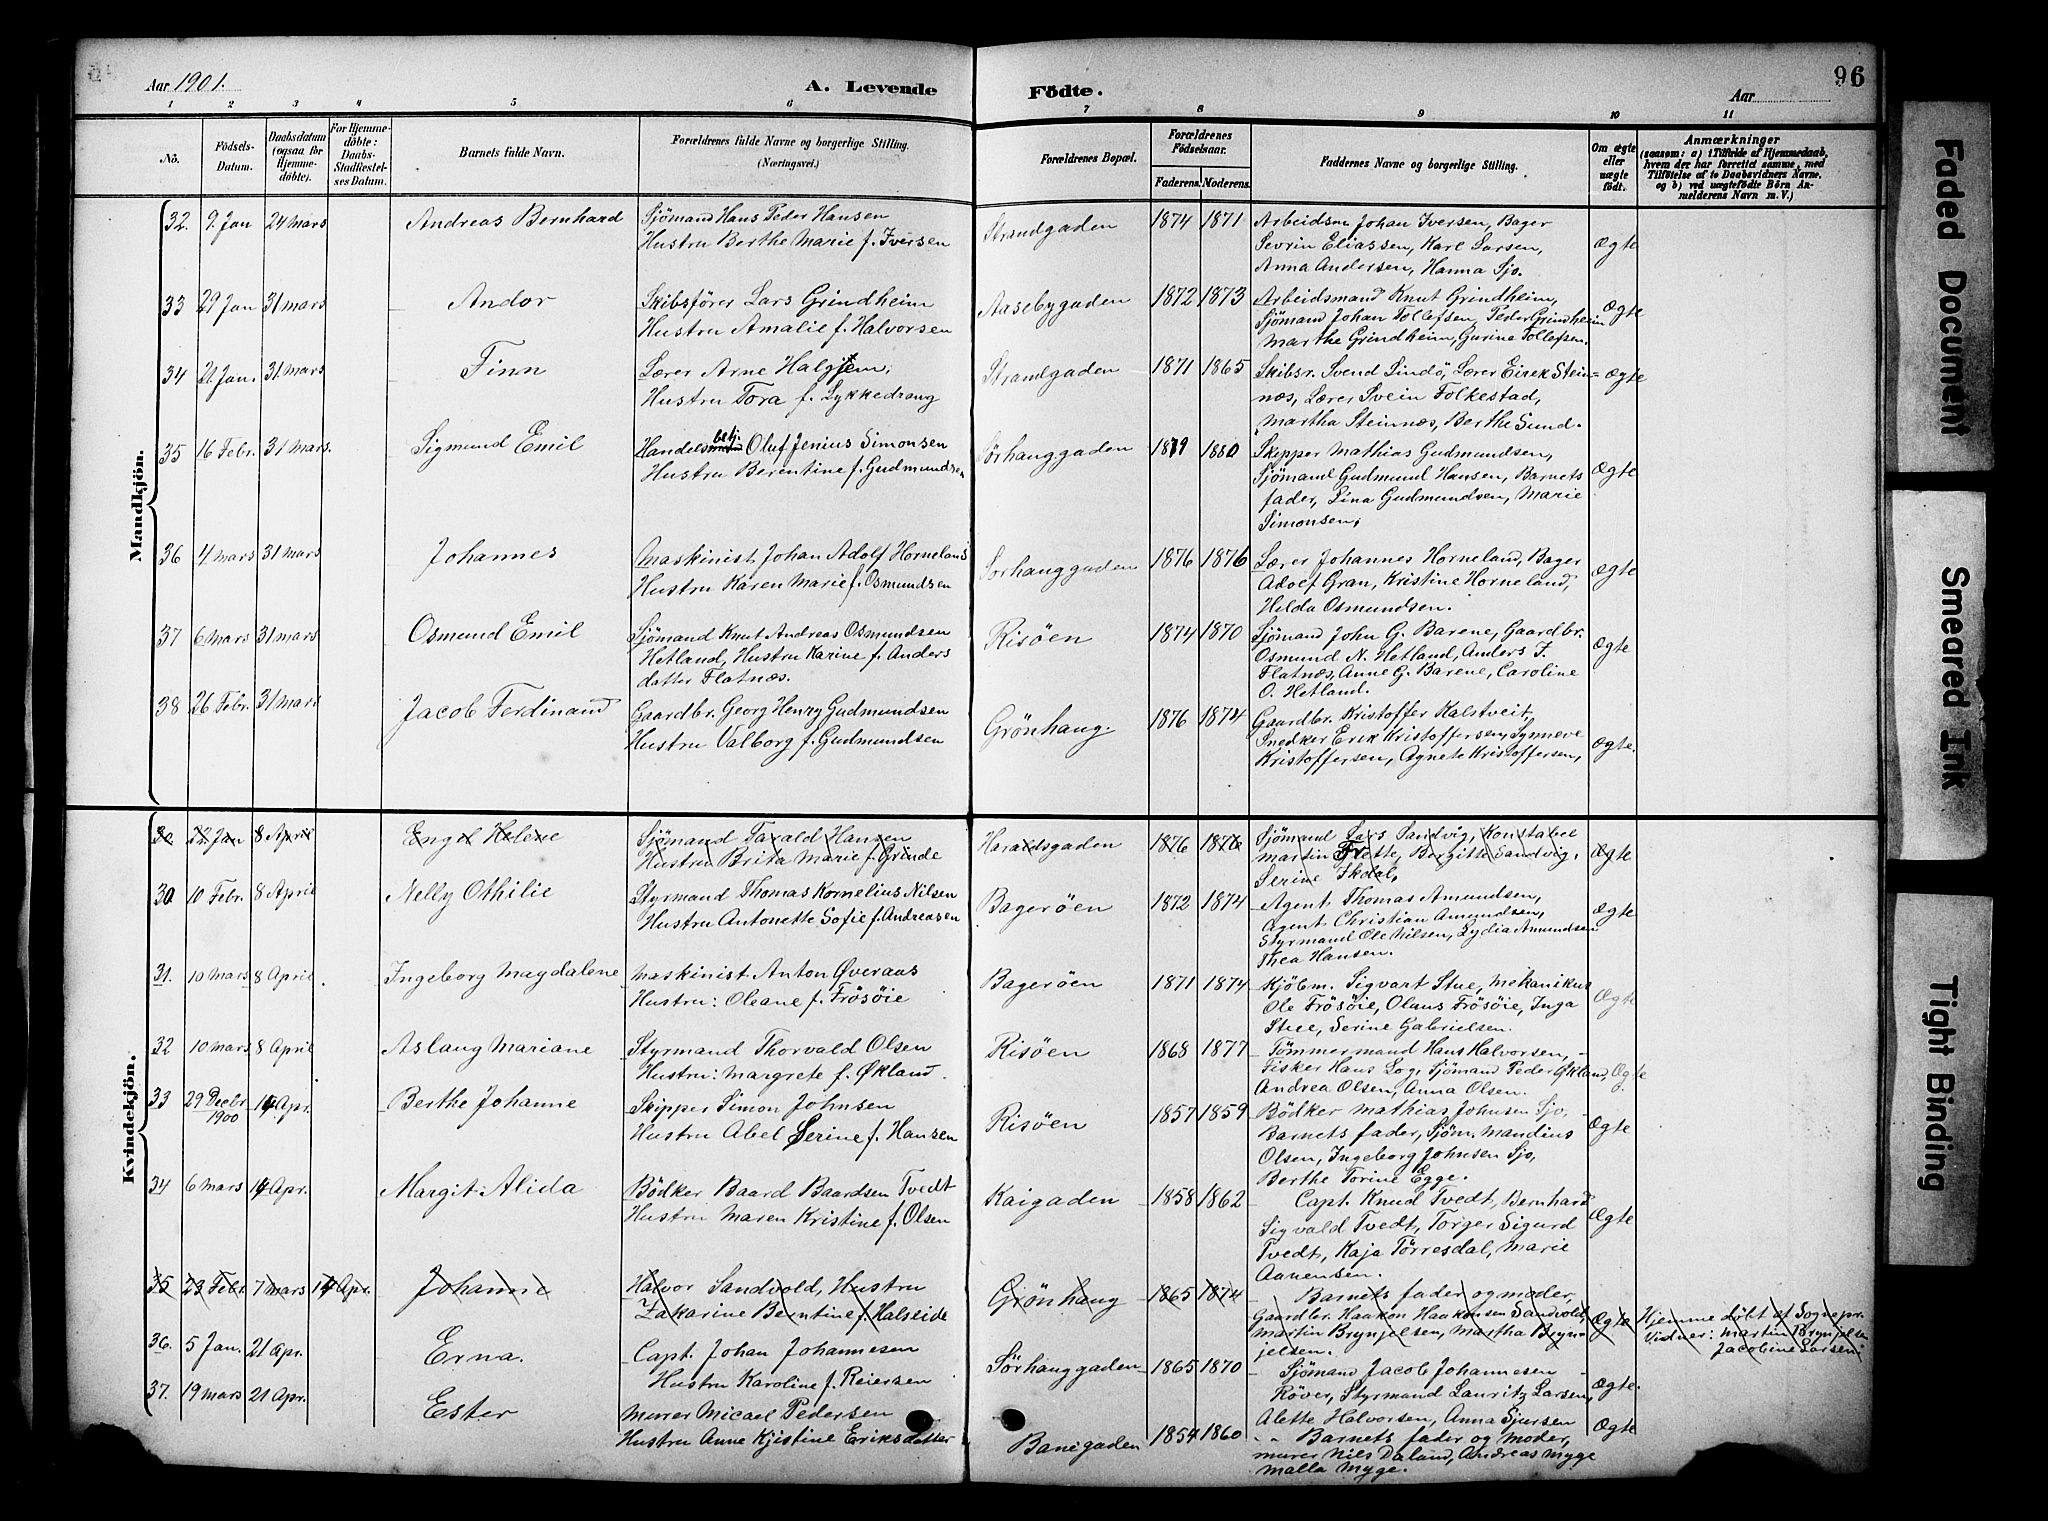 Aar 1901. A. Levende Födte. Aar 96
1 2 3 4 5 6 7 8 9 10 11
No. Födsels-Datum. Daabsdatum (ogsaa for Hjemme-döbte). For Hjemme-döbte: Daabs-Stadfæstel-ses Datum. Barnets fulde Navn. Forældrenes fulde Navne og borgerlige Stilling. (Næringsvei.) Forældrenes Bopæl. Forældrenes Födselsaar. Faderens. Moderens. Faddernes Navne og borgerlige Stilling. Om ægte eller uægte födt. Anmærkninger (saasom: a) i Tilfælde af Hjemmedaab, hvem der har forrettet samme, med Tilföielse af to Daabsvidners Navne. og b) ved uægtefödte Börn An-melderens Navn m. V.)
Mandkjön.
32. 9. Jan 24 Mars Andreas Bernhard Sjömand Hans Peder Hansen Strandgaden 1874 1871 Arbeidsm Johan Iversen, Bager Ægte
Hustru Berthe Marie f. Iversen Sevrin Eliassen, Karl Larsen,
Anna Andersen, Hanna Sjo.
33 29 Jan 31 mars Andor Skibsförer Lars Grindheim Aasebygaden 1872 1873 Arbeidsmand Knut Grindheim, Ægte
Hustru Amalie f. Halvorsen Sjömand Johan Tollefsen, Peder Grindheim
Marthe Grindheim, Gurine Tollefsen.
34 21 Jan. 31. mars Finn Lærer Arne Halgjem, Strandgaden 1871 1865 Skibsr. Svend Lindö, Lærer Eirek Stein- Ægte
Hustru Tora f. Lykkedrang næs, Lærer Svein Folkestad,
Martha Steinnæs, Berthe Sund.
35 16 Febr. 31 mars. Sigmund Emil Handelsbetj. Oluf Jenius Simonsen Sørhauggaden 1879 1880 Skipper Mathias Gudmundsen, Ægte
Hustru Berentine f. Gudmundsen Sjömand Gudmund Hansen, Barnets
fader, Lina Gudmundsen, Marie
Simonsen,
36 4 mars 31 mars Johannes Maskinist Johan Adolf Horneland Sorhauggaden 1876 1876 Lærer Johannes Horneland, Bager Ægte
Hustru Karen Marie f. Osmundsen Adolf Gran, Kristine Horneland,
Hilda Osmundsen.
37 6 mars 31 mars Osmund Emil Sjömand Knut Andreas Osmundsen Risöen 1874 1870 Sjömand John G. Barene, Gaardbr. Ægte
Hetland, Hustru Karine f. Anders Osmund N. Hetland, Anders F.
datter Flatnæs. Flatnæs, Anne G. Barene, Caroline
O. Hetland.
38 26 Febr. 31 Mars Jacob Ferdinand Gaardbr. Georg Henry Gudmundsen Grönhaug. 1876 1874 Gaardbr. Kristoffer Kalstveit, Ægte.
Hustru Valborg f. Gudmundsen Snedker Erik Kristoffersen, Synneve
Kristoffersen, Agnete Kristoffersen,
Kvindekjön.
30 22 Jan 8 April Engel Helene Sjömand Tarald Hansen Haraldsgaden 1876 1876 Sjömand Lars Sandvig, Konstabel Ægte
Hustru Brita Marie f. Grinde Martin Frette, Bergitte Sandvig,
Serine Skdal,
30 10 Febr. 8 April Nelly Othilie Styrmand Thomas Kornelius Nilsen Bagerøen 1872 1874 Agent Thomas Amundsen, Ægte
Hustru Antonette Sofie f. Andreasen Agent Christian Amundsen,
Styrmand Ole Nilsen, Lydia Amundsen
Thea Hansen.
31. 10 mars 8 April Ingeborg Magdalene Maskinist Anton Øveraas Bagerøen 1871 1874 Kjöbm. Sigvart Stue, Mekanikus Ægte
Hustru: Oleane f. Frösöie Ole Frösöie, Olaus Frösöie, Inga
Stue, Serine Gabrielsen.
32 10 mars 8 April Aslaug Mariane Styrmand Thorvald Olsen Risöen 1868 1877 Tömmermand Hans Halvorsen,
Hustru: Margrete f. Økland. Fisker Hans Log, Sjömand Peder Økland, Ægte
Andrea Olsen, Anna Olsen.
33 29 Decbr 1900 14 Apr. Berthe Johanne Skipper Simon Johnsen Risöen 1857 1859 Bödker Mathias Johnsen Sjo, Ægte
Hustru Abel Serine f. Hansen Barnets fader, Sjöm. Mandius
Olsen, Ingeborg Johnsen Sjo,
Berthe Torine Egge.
34 6 mars 14 Apr. Margit Alida Bödker Baard Baardsen Tvedt Kaigaden 1858 1862 Capt. Knud Tvedt, Bernhard Ægte
Hustru Maren Kristine f. Olsen Sigvald Tvedt, Torger Sigurd
Tvedt, Kaja Tørresdal, Marie
Aanensen.
35 23 Febr 7 mars 14 Apr. Johanne Halvor Sandvold, Hustru Grönhaug 1865 1874 Barnets fader og moder, Ægte Hjemme döbt af Sognepr.
Zakarine Berntine f. Halseide Gaardbr. Haakon Haakonsen Sandvold, Vidner: Martin Brynjelsen
Martin Brynjelsen, Martha Bryn- Jacobine Larsen.
jelsen.
36. 5 Jan. 21 Apr. Erna. Capt. Johan Johannesen Sörhauggaden 1865 1870 Sjömand Jacob Johannesen Ægte.
Hustru Karoline f. Reiersen Röver, Styrmand Lauritz Larsen,
Alette Halvorsen, Anna Sjursen
37. 19 mars 21 Apr. Ester Murer Micael Pedersen Banegaden 1854 1860 Barnets fader og moder, Ægte
Hustru Anne Kjistine Eriksdatter Murer Nils Daland, Andreas Myge
Malla Myge.
Faded Document
Smeared Ink
Tight Binding